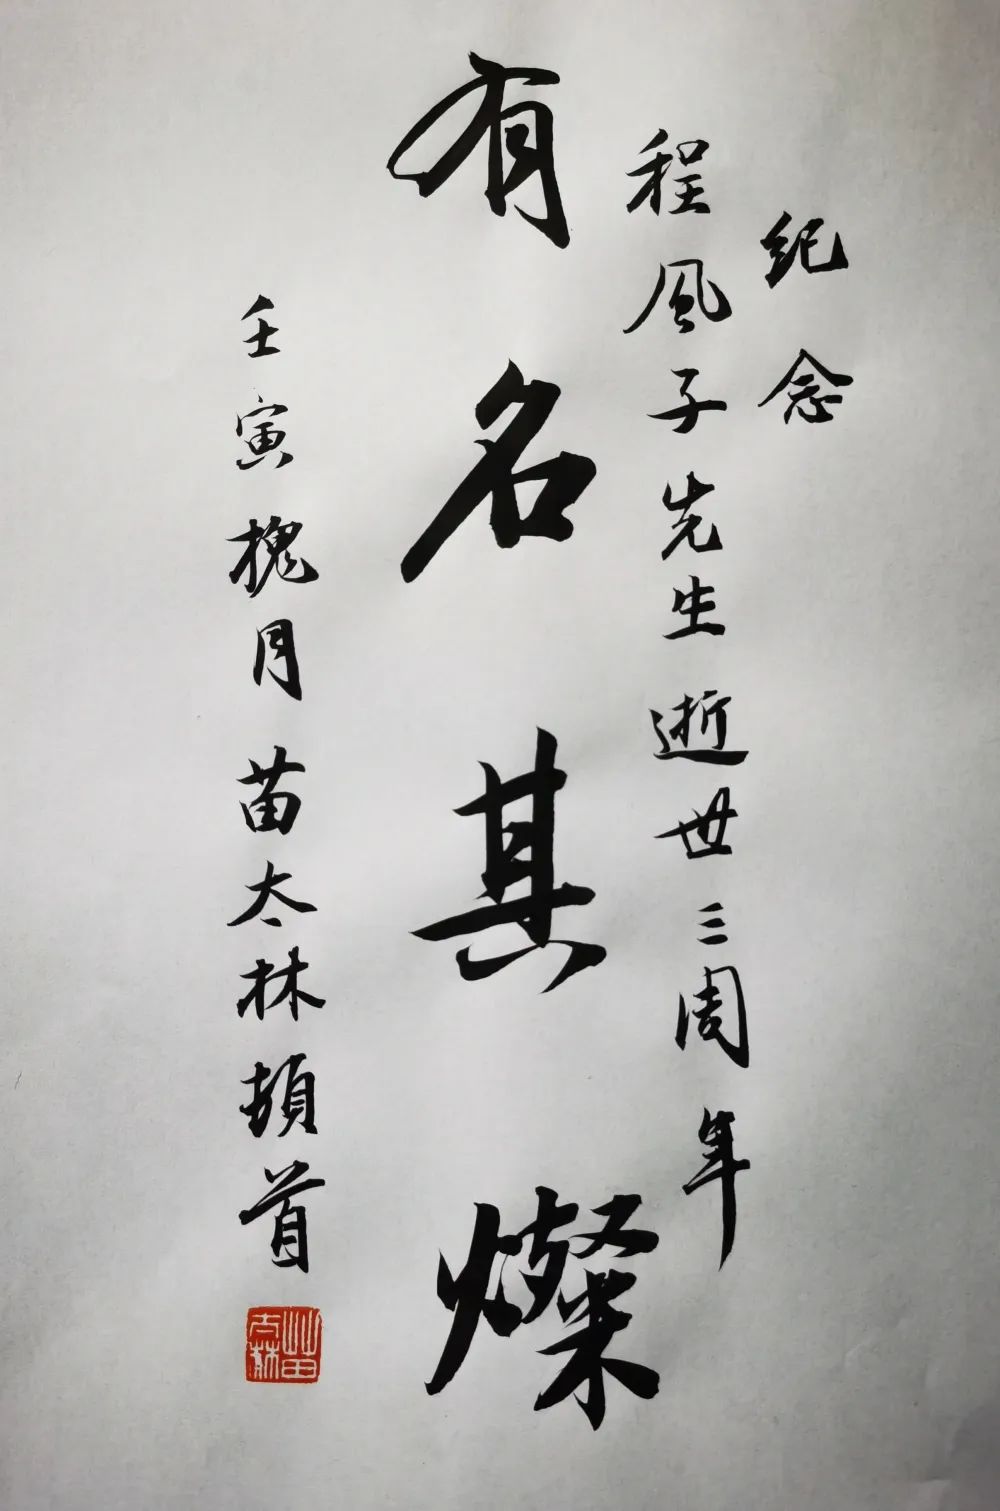 纪念
程风子先生逝世三周年
有名其燦
壬寅槐月苗太林頓首
苗太林